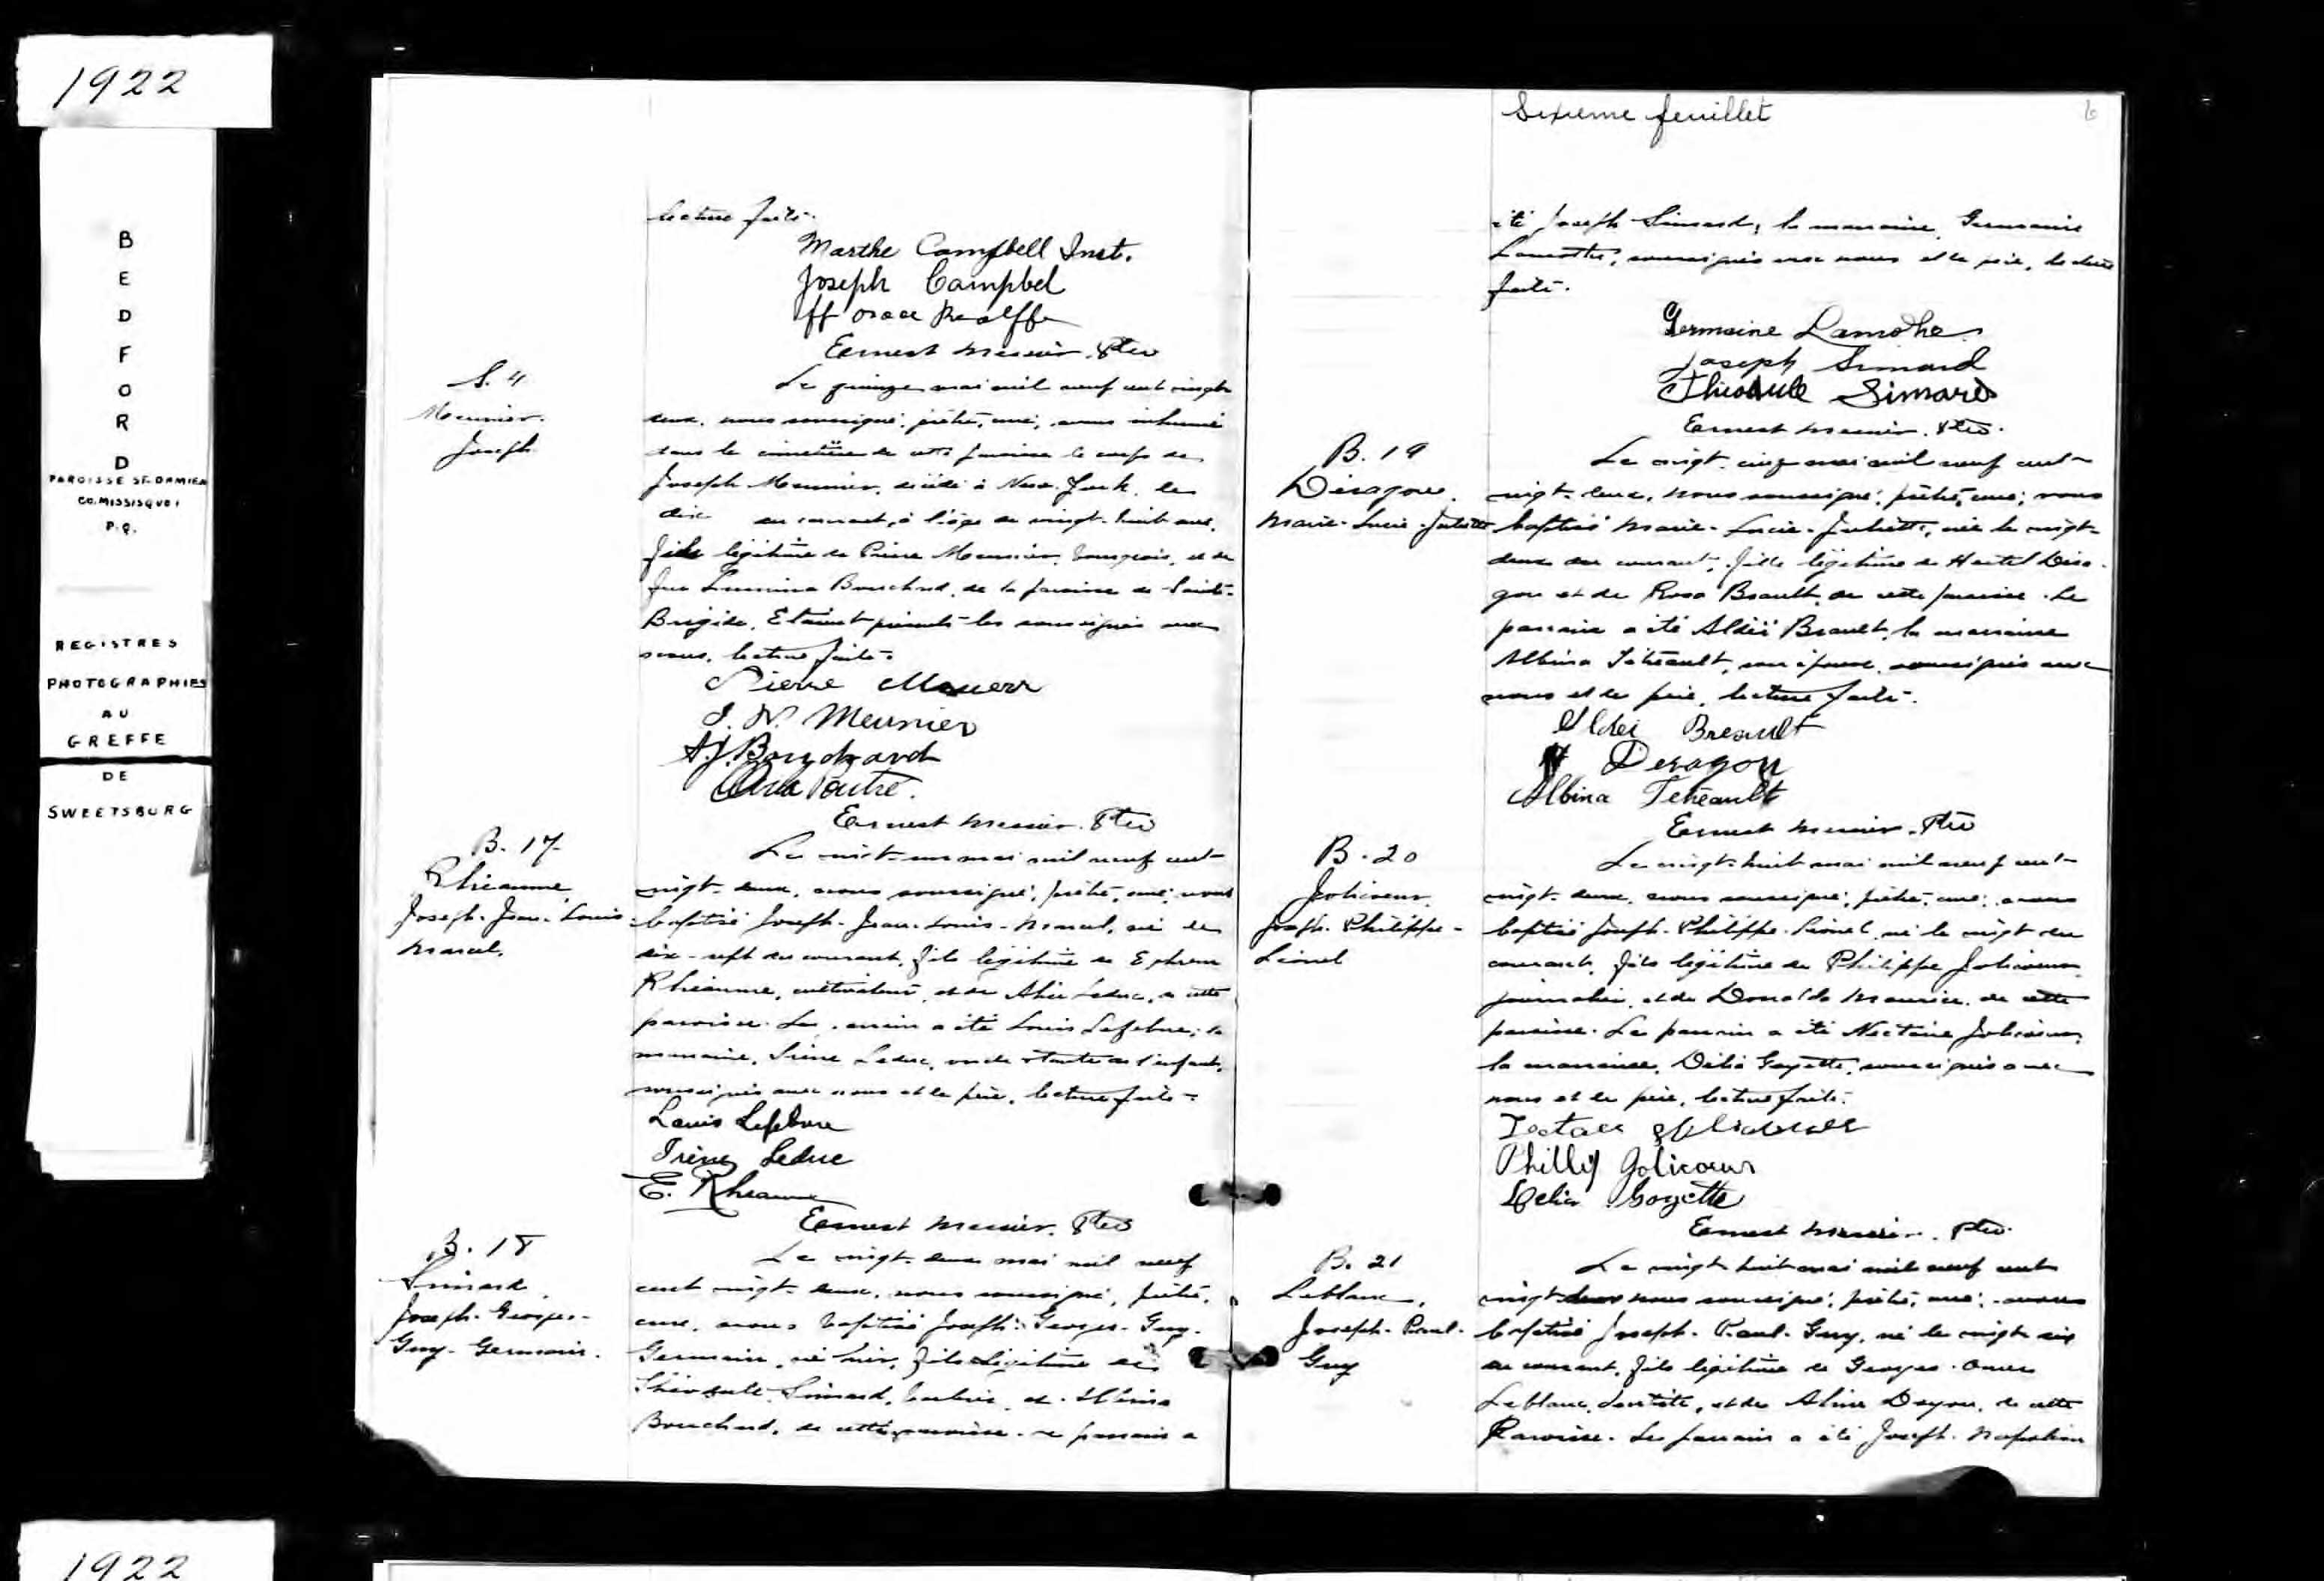 1922
BEDFORD
PAROISSE ST-DAMIEN
CO. MISSISQUOI
P.Q.
REGISTRES
PHOTOGRAPHIES
AU
GREFFE
DE
SWEETSBURG
1922
lecture faite.
Marthe Campbell Inst.
Joseph Campbel
Ernest Messier. Ptre
S. 4
Meunier.
Joseph
Le quinze mai mil neuf cent vingt-
deux, nous soussigné, prêtre, curé, avons inhumé
dans le cimetière de cette paroisse le corps de
Joseph Meunier, décédé à New-York, le
dix du courant, à l'âge de vingt-huit ans,
fils légitime de Pierre Meunier, bourgeois, et de
feu Bouchard, de la paroisse de Sainte-
Brigide. Etaient présents les soussignés avec
nous, lecture faite.
Pierre
J. N. Meunier
A. J. Bouchard
Ernest Messier. Ptre
B. 17
Rhéaume,
Joseph-Jean-Louis
Marcel.
Le vingt-un mai mil neuf cent-
vingt-deux, nous soussigné, prêtre, curé, avons
baptisé Joseph-Jean-Louis-Marcel, né le
dix-sept du courant, fils légitime de Ephrem
Rhéaume, cultivateur, et de Alice Leduc, de cette
paroisse. Le parrain a été Louis Lefebvre, la
marraine, Irène Leduc, oncle et tante de l'enfant,
soussignés avec nous et le père, lecture faite.
Louis Lefebvre
Irène Leduc
E. Rheaume
Ernest Messier. Ptre
B. 18
Simard,
Joseph-Georges-
Guy-Germain.
Le vingt-deux mai mil neuf
cent vingt-deux, nous soussigné, prêtre,
curé, avons baptisé Joseph-Georges-Guy-
Germain, né hier, fils légitime de
Théodule Simard, barbier, et
Bouchard, de cette paroisse. Le parrain a
Sixième feuillet
6
été Joseph Simard, la marraine, Germaine
Lamothe, soussignés avec nous et le père, lecture
faite.
Germaine Lamothe
Joseph Simard
Théodule Simard
Ernest Messier. Ptre.
B. 19
Déragon.
Marie-Lucie-Juliette
Le vingt-cinq mai mil neuf cent-
vingt-deux, nous soussigné, prêtre, curé, avons
baptisé Marie-Lucie-Juliette, née le vingt-
deux du courant, fille légitime de Hertel Déra-
gon et de Rosa Brault, de cette paroisse. Le
parrain a été Aldéi Brault, la marraine
Albina Tétreault, son épouse, soussignés avec
nous et le père, lecture faite.
Aldei Breault
H Deragon
Albina Tetreault
Ernest Messier. Ptre
B. 20
Jolicoeur.
Joseph-Philippe-
Lionel
Le vingt-huit mai mil neuf cent-
vingt-deux, nous soussigné, prêtre, curé, avons
baptisé Joseph-Philippe-Lionel, né le vingt du
courant, fils légitime de Philippe Jolicoeur,
journalier, et de Donalda Maurice, de cette
paroisse. Le parrain a été Nectaire Jolicoeur,
la marraine, Délia Goyette, soussignés avec
nous et le père, lecture faite.
Phillip Jolicoeur
Delia Goyette
Ernest Messier. Ptre
B. 21
Leblanc,
Joseph-Paul-
Guy
Le vingt-huit mai mil neuf cent
vingt-deux nous soussigné, prêtre, curé, avons
baptisé Joseph-Paul-Guy, né le vingt-six
du courant, fils légitime de Georges-Omer
Leblanc, dentiste, et de Aline Doyon, de cette
Paroisse. Le parrain a été Joseph-Napoléon